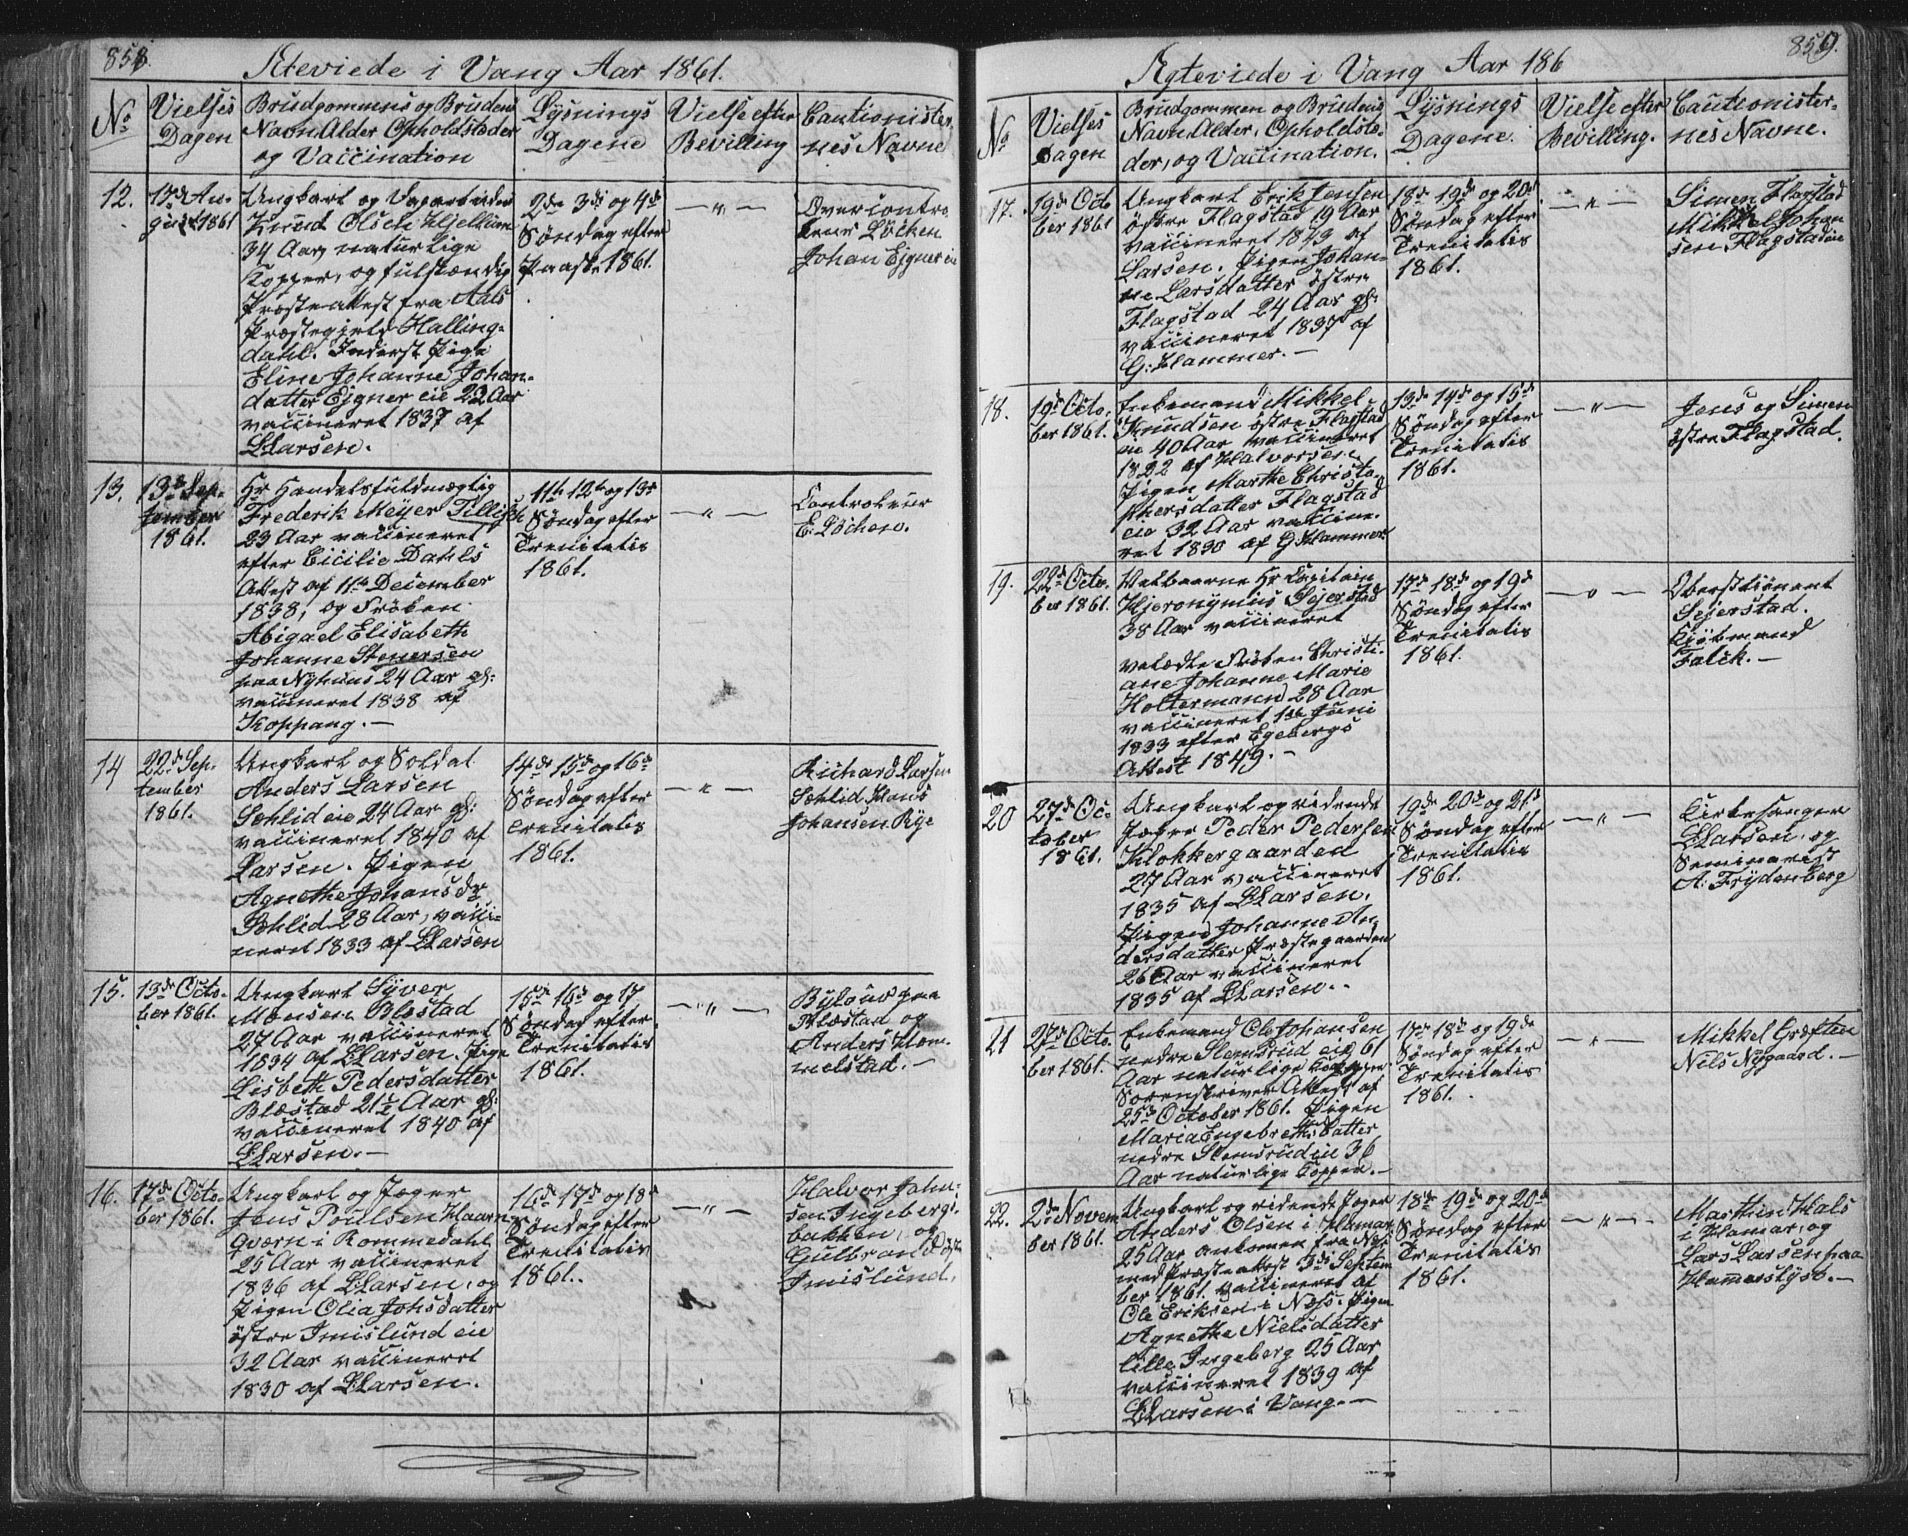 858.
Ægteviede i Vang Aar 1861.
No
Vielses
Dagen
Brudgommens og Brudens
Navn Alder Opholdsteder
og Vaccination
Lysnings
Dagene
Vielse efter
Bevilling
Cautionister-
nes Navne
12.
17de Au-
gust 1861
Ungkarl og
Knud Olsen Hjellum
34 Aar, naturlige
Kopper, og fulstændig
Præsteattest fra Aals
Præstegjeld Halling-
dahl. Inderst Pige
Eline Johanne Johan-
datter Ejgner eie 22 Aar
vaccineret 1837 af
L Larsen.
2de 3di og 4de
Søndag efter
Paaske 1861.
— " —
Overcontro
leur Löchen
Johan Ejgner eie
13.
13de Sep-
tember
1861.
Hr Handelsfuldmægtig
Frederik Meyer Tillisch
23 Aar vaccineret
efter Cicilie Dahls
Attest af 11te December
1838, og Frøken
Abigael Elisabeth
Johanne Stenersen
paa Nyhuus 24 Aar gl:
vaccineret 1838 af
Koppang. —
11te 12te og 13de
Søndag efter
Trenitatis
1861.
— " —
Controleur
E: Löchen.
14
22de Sep-
tember
1861.
Ungkarl og Soldat
Anders Larsen
Sæhlid eie 24 Aar gl:
vaccineret 1840 af
Larsen. Pigen
Agnethe Johansdr
Sæhlid 28 Aar, vacci-
neret 1833 af L Larsen
14de 15de og 16de
Søndag efter
Trenitatis
1861.
— " —
Richard Larsen
Sæhlid Hans
Johansen Rye
15.
13de Octo-
ber 1861.
Ungkarl Syver
Monsen Blæstad
27 Aar vaccineret
1834 af L Larsen. Pige
Lisbeth Pedersdatter
Blæstad 21½ Aar gl:
vaccineret 1840 af
L Larsen. —
15de 16de og 17
Søndag efter
Trenitatis
1861.
— " —
paa
Blæstad og
Anders Hom-
melstad. —
16.
17de Octo-
ber 1861.
Ungkarl og Jæger
Jens Poulsen Haarn-
qværn i Rommedahl
25 Aar vaccineret
1836 af L Larsen, og
Pigen Olia Johsdatter
østre Imislund eie
32 Aar vaccineret
1830 af L Larsen.
16de 17de og 18de
Søndag efter
Trenitatis
1861.
— " —
Halvor John-
sen Ingebergs-
bakken, og
Gulbrand østre
Imislund.
859.
Ægteviede i Vang Aar 186
No
Vielses
Dagen
Brudgommen og Brudens
Navn Alder, Opholdste-
der, og Vaccination.
Lysnings
Dagene.
Vielse efter
Bevilling.
Cautionister-
nes Navne.
17.
19de Octo
ber 1861
Ungkarl Erik Jensen
østre Flagstad 19 Aar
vaccineret 1843 af
Larsen. Pigen Johan-
ne Larsdatter østre
Flagstad 24 Aar gl:
vaccineret 1837 af
G: Hammer. —
18de 19de og 20de
Søndag efter
Trenitatis
1861.
— " —
Simen Flagstad
Mikkel Johan
sen Flagstadeie
18.
19de Octo-
ber 1861.
Enkemand Mikkel
Knudsen østre Flagstad
eie 40 Aar vaccineret
1822 af Halvorsen
Pigen Marthe Christo-
phersdatter Flagstad
eie 32 Aar vaccine-
ret 1830 af G Hammer
13de 14de og 15de
Søndag efter
Trenitatis
1861.
— " —
Jens og Simen
østre Flagstad.
19.
22de Octo-
ber 1861.
Velbaarne Hr Capitain
Hjeronymius Sejerstad
38 Aar vaccineret
velædle Frøken Christi-
ane Johanne Marie
Holtermann 28 Aar
vaccineret 1ste Juni
1833 efter Egebergs
Attest 1849. —
17de 18de og 19de
Søndag efter
Trenitatis
1861.
— " —
Oberstliönent
Sejerstad.
Kjöbmand
Falck. —
20
27de Oc-
tober
1861.
Ungkarl og ridende
Jæger Peder Pedersen
Klokkergaarden
27 Aar vaccineret
1835 af L Larsen.
Pigen Johanne An-
dersdatter Præstegaarden
26 Aar vaccineret
1835 af L Larsen.
19de 20de og 21de
Søndag efter
Trenitatis
1861.
— " —
Kirkesanger
L Larsen, og
Seminarist
A: Frydenberg
21
27de Octo-
ber 1861.
Enkemand Ole Johansen
nedre Slemsrud eie 61
Aar naturlige Kopper
Sorenskriver Attest af
25de October 1861. Pigen
Maria Engebrethsdatter
nedre Slemsrud eie 36
Aar naturlige Copper. —
17de 18de og 19de
Søndag efter
Trenitatis
1861.
— " —
Mikkel Græfteie
Nils Nygaard. —
22.
2den Novem
ber 1861.
Ungkarl og ridende Jæger
Anders Olsen i Hamar
25 Aar ankomen fra Næs
med Præsteattest 3de Septem
ber 1861. vaccineret af
Ole Eriksen i Næss. Pigen
Agnethe Nielsdatter
lille Ingeberg 25 Aar
vaccineret 1839 af
L Larsen i Vang. —
18de 19de og 20de
Søndag efter
Trenitatis
1861.
— " —
Marthin Hals
i Hamar, og
Lars Larsen paa
Hamerslyst. —